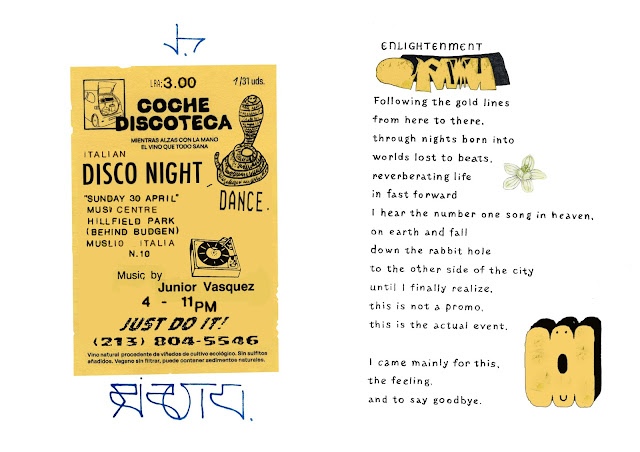 LRA: 3.00
1/31 uds.
COCHE
DISCOTECA
MIENTRAS ALZAS CON LA MANO
EL VINO QUE TODO SANA
ITALIAN
DISCO NIGHT
DANCE.
"SUNDAY 30 APRIL"
CENTRE
HILLFIELD PARK
(BEHIND BUDGEN)
MUSLIO ITALIA
N.10
Music by
Junior Vasquez
4 - 11PM
JUST DO IT!
(213) 804-5546
Vino natural procedente de viñedos de cultivo ecológico. Sin sulfitos
añadidos. Vegano sin filtrar, puede contener sedimentos naturales.
ENLIGHTENMENT
Following the gold lines
from here to there,
through nights born into
worlds lost to beats,
reverberating life
in fast forward
I hear the number one song in heaven,
on earth and fall
down the rabbit hole
to the other side of the city
until I finally realize,
this is not a promo,
this is the actual event.
I came mainly for this,
the feeling,
and to say goodbye.